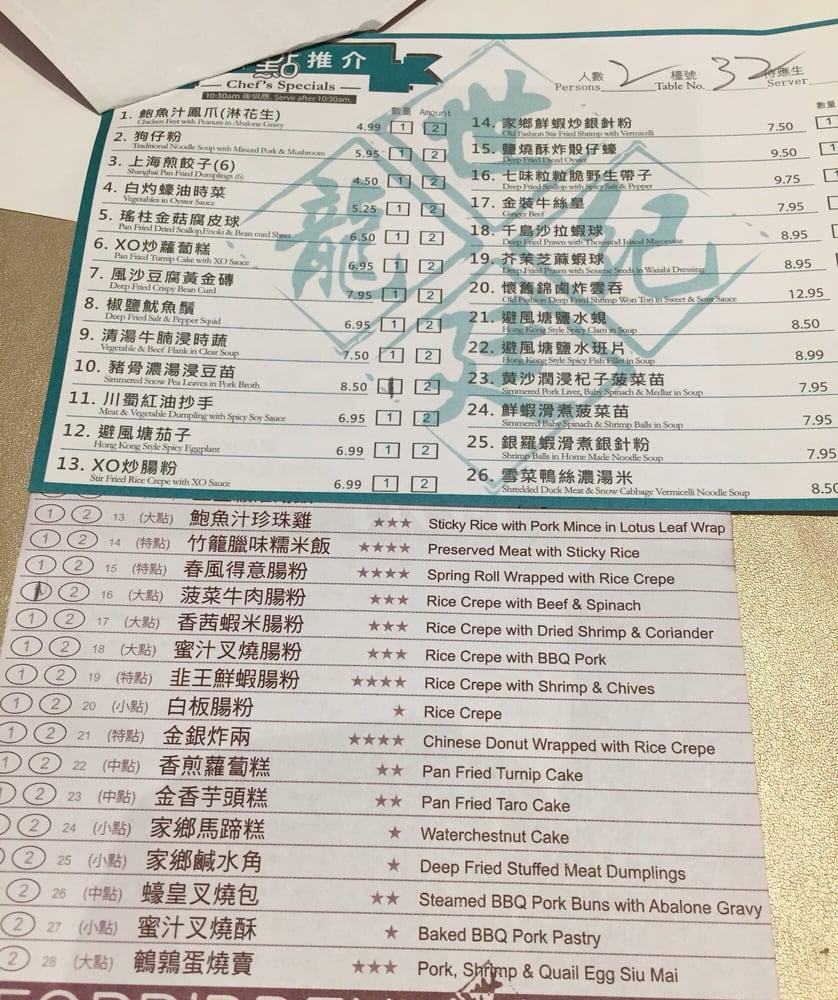 點推介
Chef's Specials
10:30am 後供應. Serve after 10:30am.
人數 Persons 2 檯號 Table No. 32 侍應生 Server
數量 Amount
1. 鮑魚汁鳳爪(淋花生) 4.99 1 2
Chicken Feet with Peanuts in Abalone Gravy
2. 狗仔粉 5.95 1 2
Traditional Noodle Soup with Minced Pork & Mushroom
3. 上海煎餃子(6) 4.50 1 2
Shanghai Pan Fried Dumplings (6)
4. 白灼蠔油時菜 5.25 1 2
Vegetables in Oyster Sauce
5. 瑤柱金菇腐皮球 6.50 1 2
Pan Fried Dried Scallop,Enoki & Bean curd Sheet
6. XO炒蘿蔔糕 6.95 1 2
Pan Fried Turnip Cake with XO Sauce
7. 風沙豆腐黃金磚 7.95 1 2
Deep Fried Crispy Bean Curd
8. 椒鹽魷魚鬚 6.95 1 2
Deep Fried Salt & Pepper Squid
9. 清湯牛腩浸時蔬 7.50 1 2
Vegetable & Beef Flank in Clear Soup
10. 豬骨濃湯浸豆苗 8.50 1 2
Simmered Snow Pea Leaves in Pork Broth
11. 川蜀紅油抄手 6.95 1 2
Meat & Vegetable Dumpling with Spicy Soy Sauce
12. 避風塘茄子 6.99 1 2
Hong Kong Style Spicy Eggplant
13. XO炒腸粉 6.99 1 2
Stir Fried Rice Crepe with XO Sauce
數量
14. 家鄉鮮蝦炒銀針粉 7.50 1
Old Fashion Stir Fried Shrimp with Vermicelli
15. 鹽燒酥炸骰仔蠔 9.50 1
Deep Fried Diced Oyster
16. 七味粒粒脆野生帶子 9.75
Deep Fried Scallop with Spicy Salt & Pepper
17. 金裝牛絲皇 7.95
Ginger Beef
18. 千島沙拉蝦球 8.95
Deep Fried Prawn with Thousand Island Mayonaise
19. 芥茉芝蔴蝦球 8.95
Deep Fried Prawn with Sesame Seeds in Wasabi Dressing
20. 懷舊錦鹵炸雲吞 12.95
Old Fashion Deep Fried Shrimp Won Ton in Sweet & Sour Sauce
21. 避風塘鹽水蜆 8.50
Hong Kong Style Spicy Clam in Soup
22. 避風塘鹽水班片 8.99
Hong Kong Style Spicy Fish Fillet in Soup
23. 黄沙潤浸杞子菠菜苗 7.95
Simmered Pork Liver, Baby Spinach & Medlar in Soup
24. 鮮蝦滑煮菠菜苗 7.95
Simmered Baby Spinach & Shrimp Balls in Soup
25. 銀羅蝦滑煮銀針粉 7.95
Shrimp Balls in Home Made Noodle Soup
26. 雪菜鴨絲濃湯米 8.50
Shredded Duck Meat & Snow Cabbage Vermicelli Noodle Soup
世
龍 紀
1 2 13 (大點) 鮑魚汁珍珠雞 ★★★ Sticky Rice with Pork Mince in Lotus Leaf Wrap
1 2 14 (特點) 竹籠臘味糯米飯 ★★★★ Preserved Meat with Sticky Rice
1 2 15 (特點) 春風得意腸粉 ★★★★ Spring Roll Wrapped with Rice Crepe
1 2 16 (大點) 菠菜牛肉腸粉 ★★★ Rice Crepe with Beef & Spinach
1 2 17 (大點) 香茜蝦米腸粉 ★★★ Rice Crepe with Dried Shrimp & Coriander
1 2 18 (大點) 蜜汁叉燒腸粉 ★★★ Rice Crepe with BBQ Pork
1 2 19 (特點) 韭王鮮蝦腸粉 ★★★★ Rice Crepe with Shrimp & Chives
1 2 20 (小點) 白板腸粉 ★ Rice Crepe
1 2 21 (特點) 金銀炸兩 ★★★★ Chinese Donut Wrapped with Rice Crepe
1 2 22 (中點) 香煎蘿蔔糕 ★★ Pan Fried Turnip Cake
2 23 (中點) 金香芋頭糕 ★★ Pan Fried Taro Cake
2 24 (小點) 家鄉馬蹄糕 ★ Waterchestnut Cake
2 25 (小點) 家鄉鹹水角 ★ Deep Fried Stuffed Meat Dumplings
2 26 (中點) 蠔皇叉燒包 ★★ Steamed BBQ Pork Buns with Abalone Gravy
2 27 (小點) 蜜汁叉燒酥 ★ Baked BBQ Pork Pastry
2 28 (大點) 鵪鶉蛋燒賣 ★★★ Pork, Shrimp & Quail Egg Siu Mai